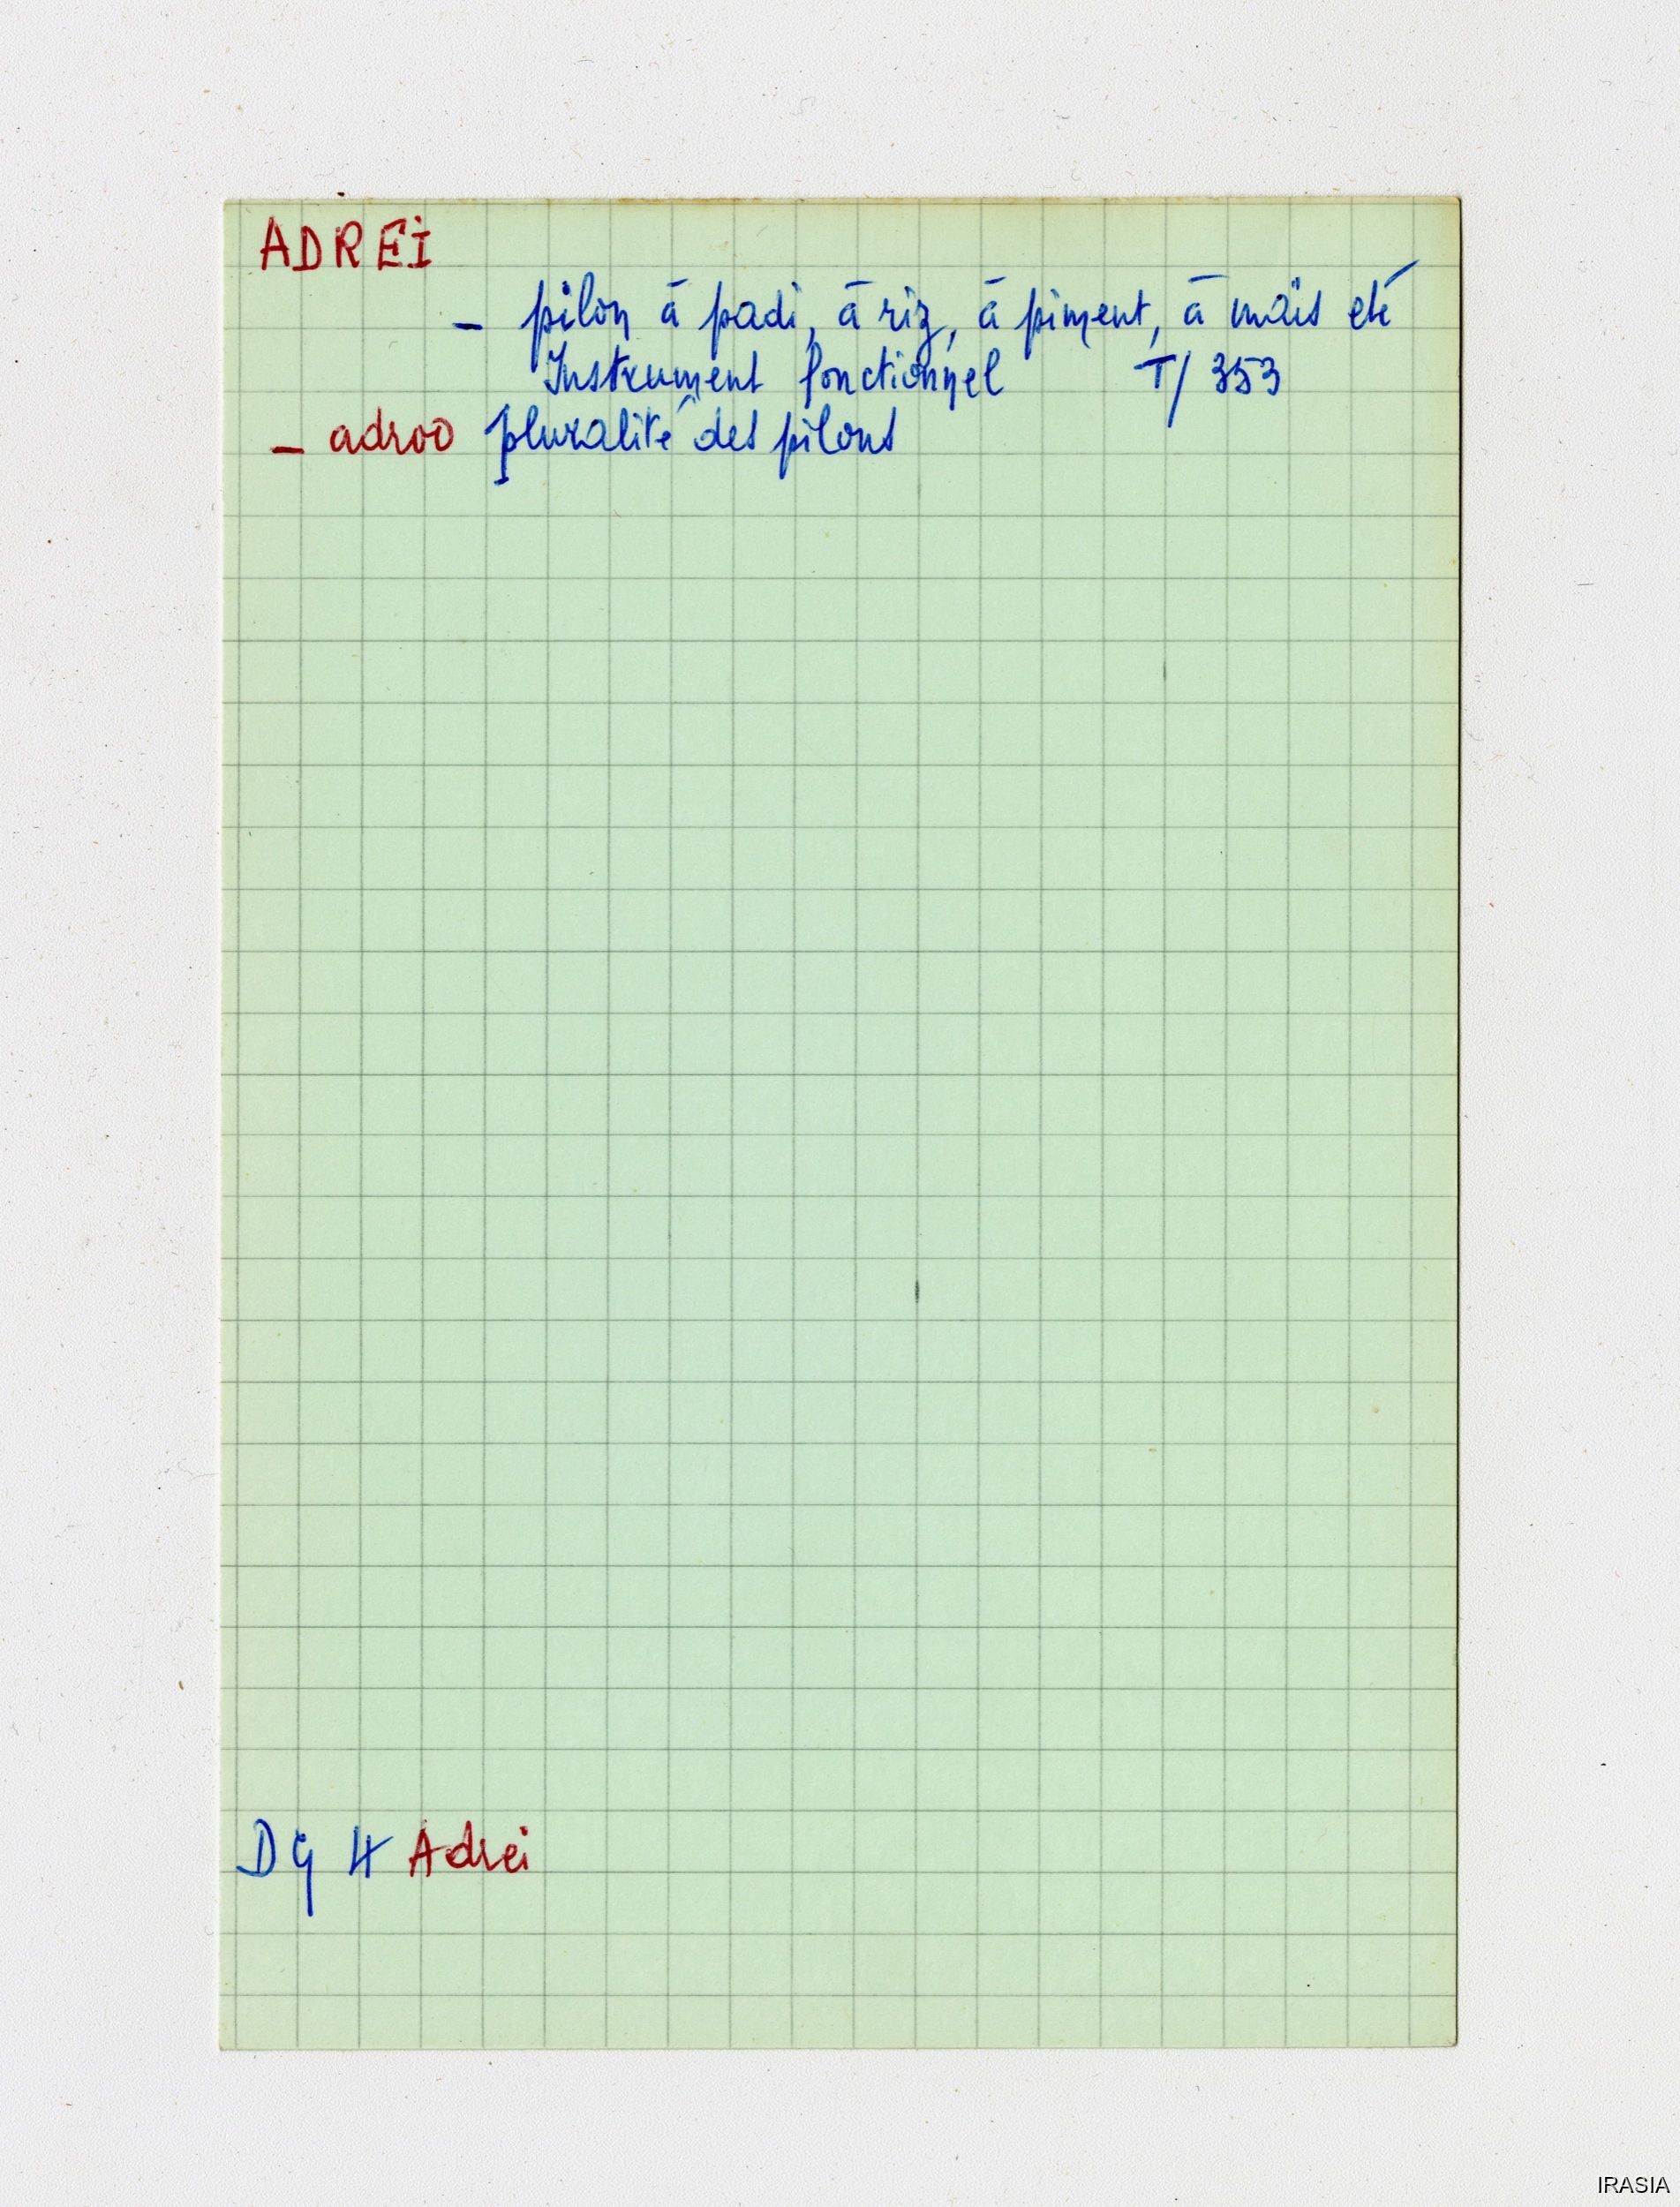 ADREI
– pilon à padi, à riz, à piment, à maïs etc
Instrument fonctionnel T/ 353
– adroo pluralité des pilons
Dg H Adrei
IRASIA